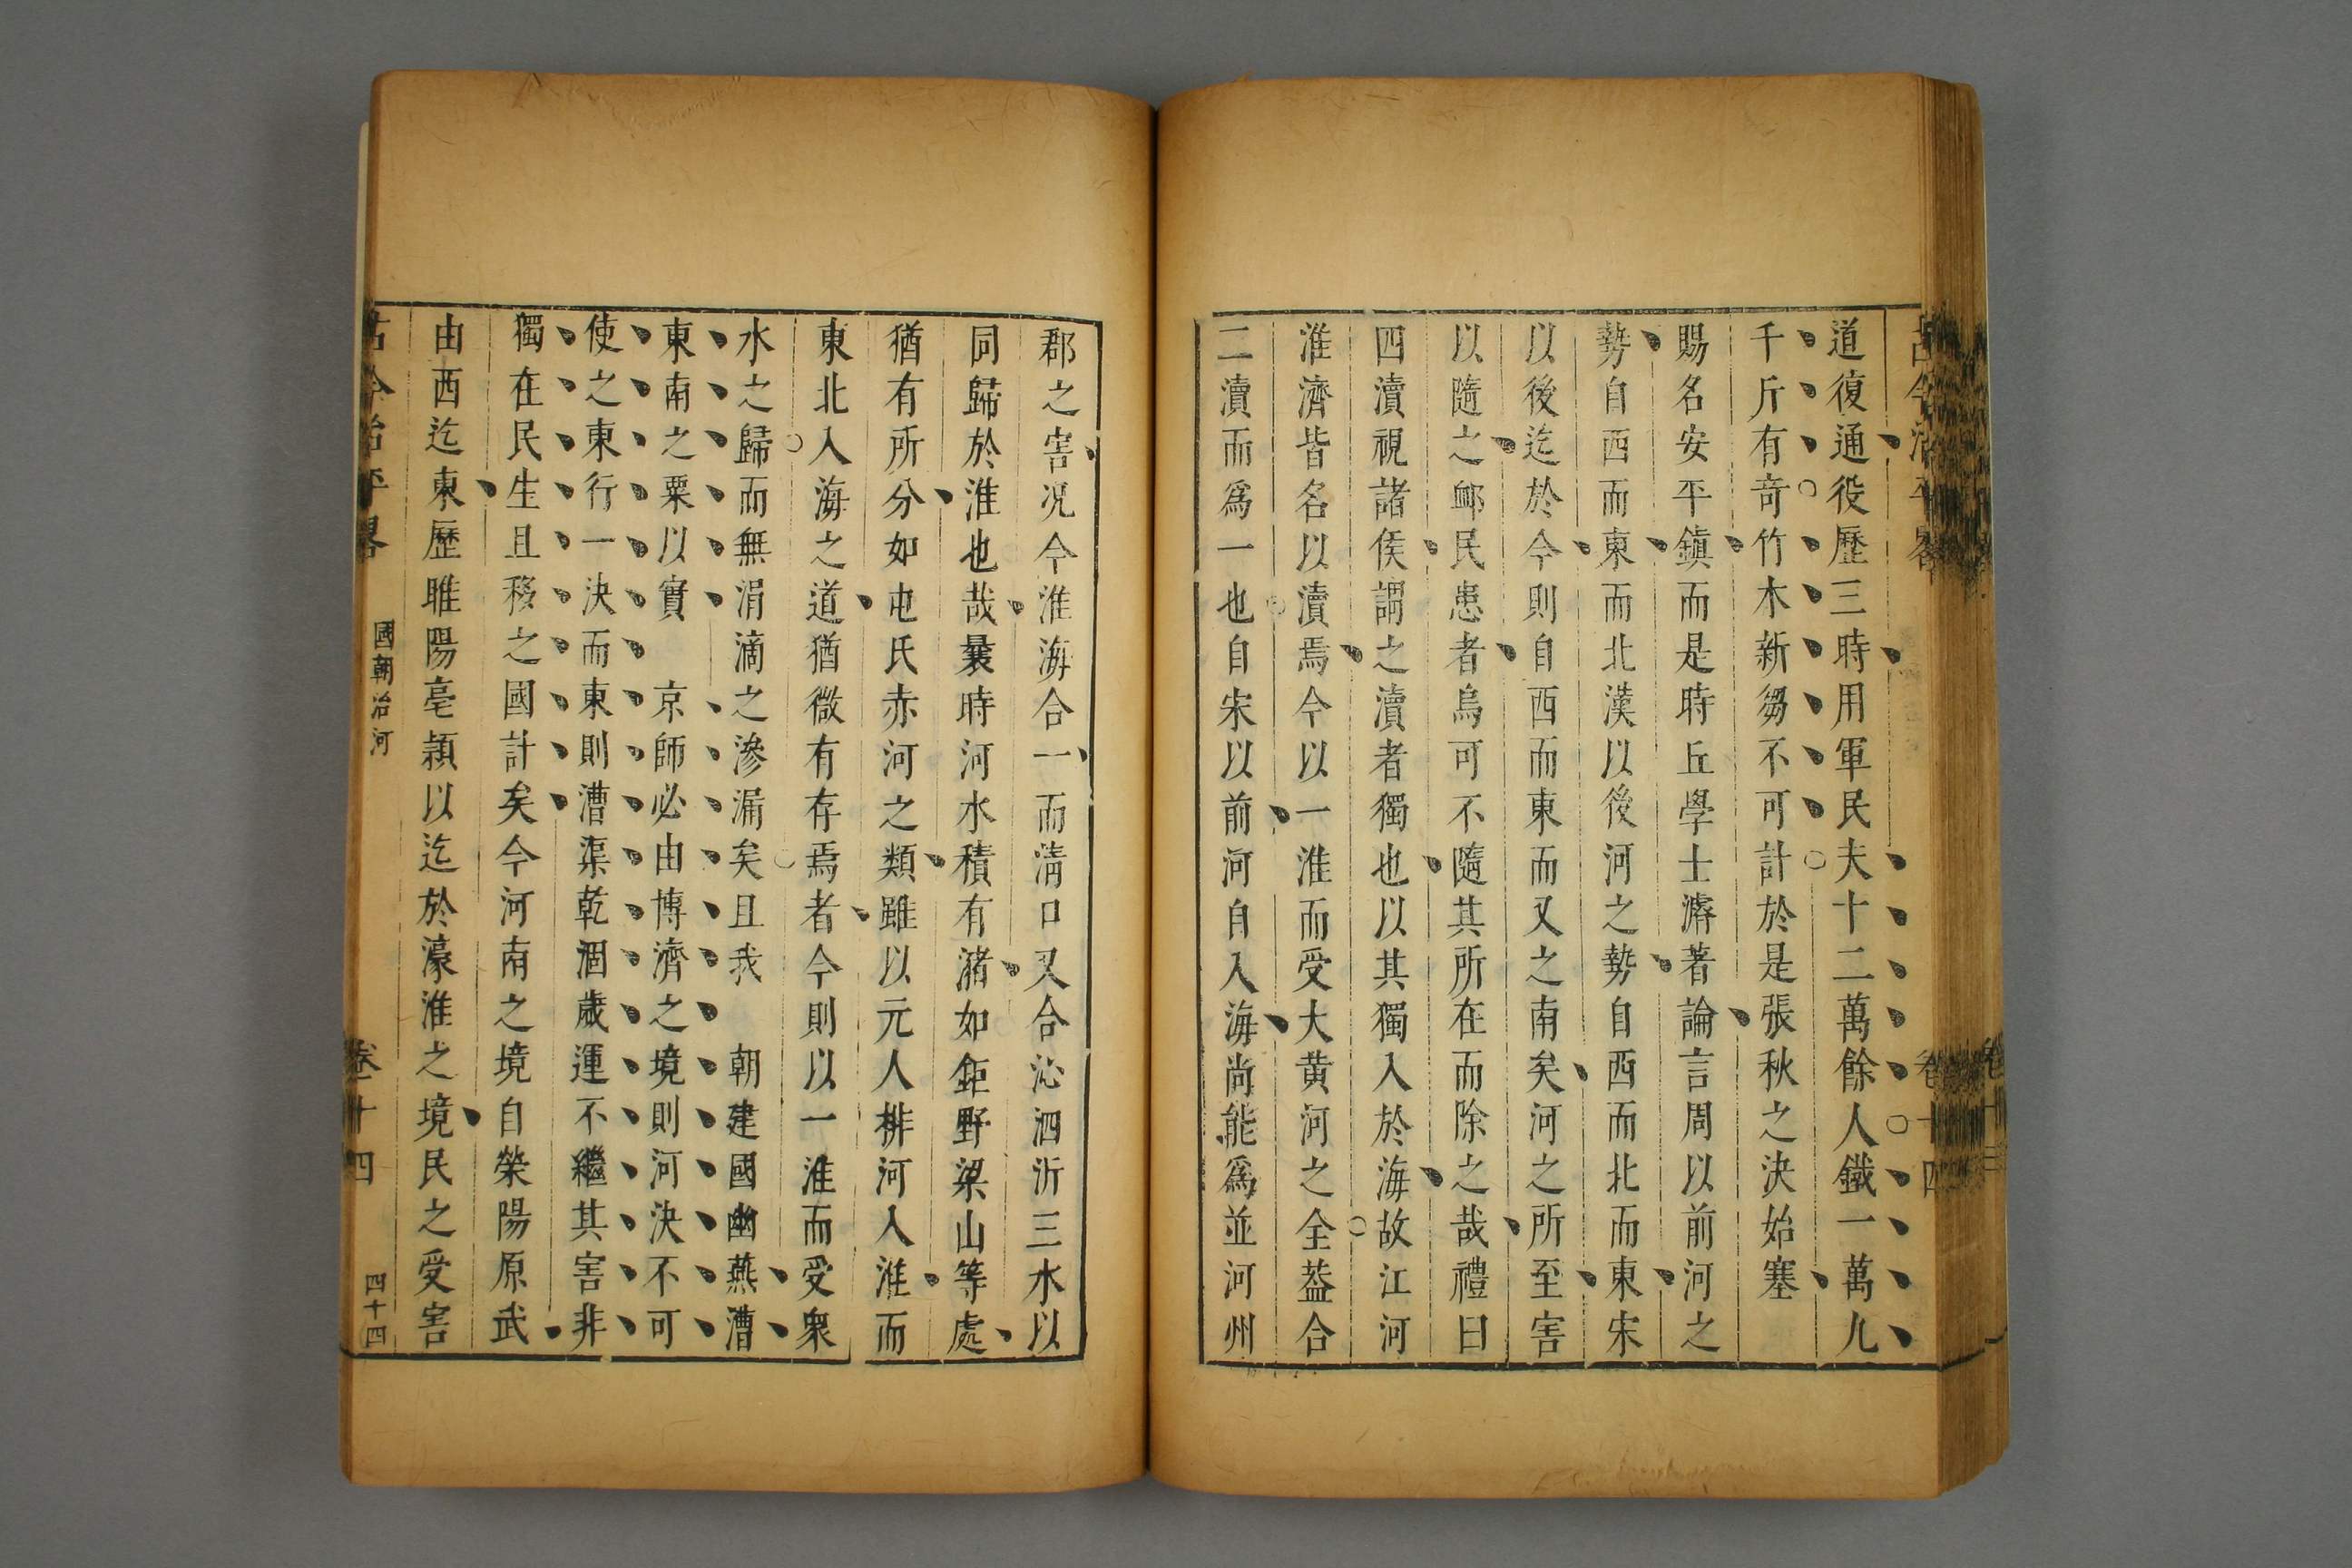 道復通役歷三時用軍民夫十二萬餘人鐵一萬九
千斤有竒竹木新芻不可計於是張秋之決始塞
賜名安平鎮而是時丘學士濬著論言周以前河之
勢自西而東而北漢以後河之勢自西而北而東宋
以後迄於今則自西而東而又之南矣河之所至害
以隨之䘏民患者烏可不隨其所在而除之哉禮曰
四瀆視諸侯謂之瀆者獨也以其獨入於海故江河
淮濟皆名以瀆焉今以一淮而受大黄河之全葢合
二瀆而爲一也自宋以前河自入海尚能爲並河州
郡之害况今淮海合一而清口又合沁泗沂三水以
同歸於淮也哉曩時河水積有瀦如鉅野梁山等處
猶有所分如屯氏赤河之類雖以元人排河入淮而
東北入海之道猶微有存焉者今則以一淮而受衆
水之歸而無涓滴之滲漏矣且我　朝建國幽燕漕
東南之粟以實　京師必由博濟之境則河決不可
使之東行一決而東則漕渠乾涸歲運不繼其害非
獨在民生且移之國計矣今河南之境自滎陽原武
由西迄東歷睢陽亳潁以迄於濠淮之境民之受害
古今治平畧　國朝治河　卷十四　四十四